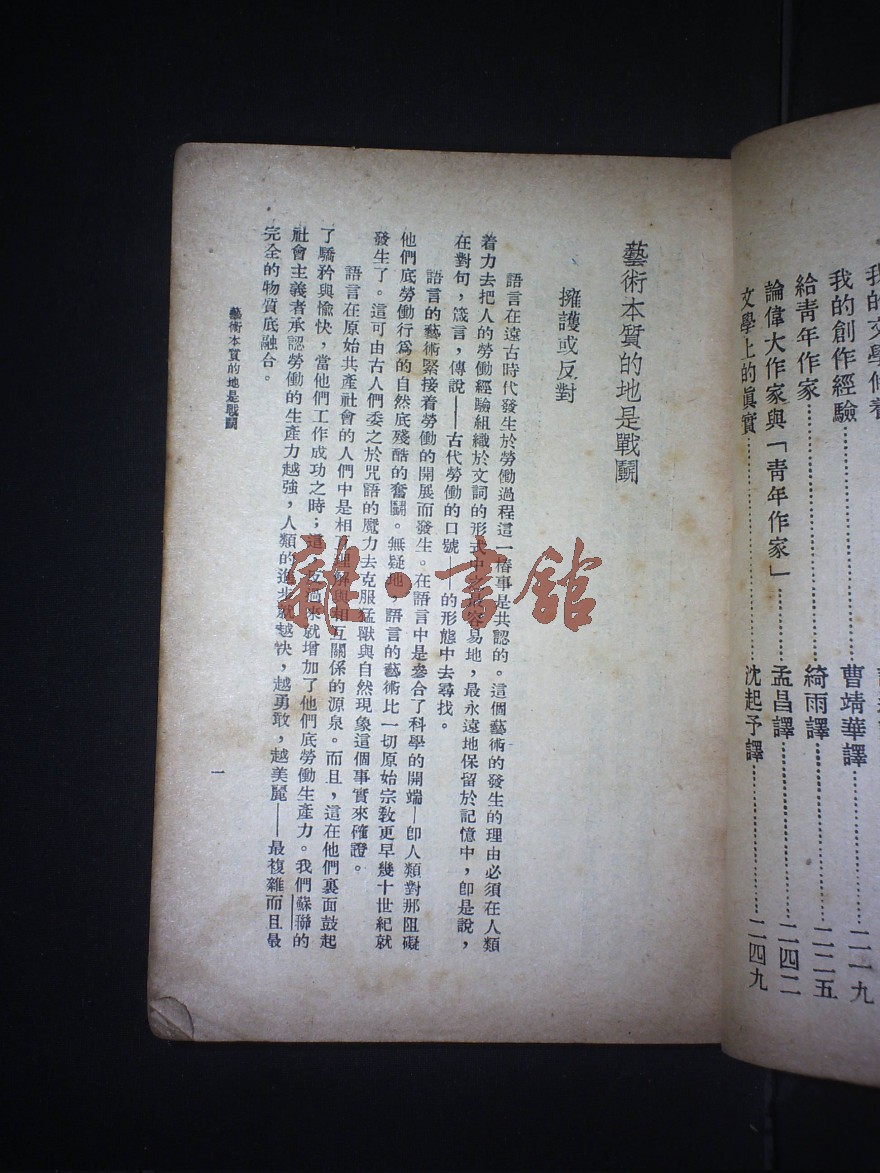 我的文學修養
我的創作經驗……曹靖華譯……二一九
給靑年作家……綺雨譯……二二五
論偉大作家與「靑年作家」……孟昌譯……二四二
文學上的眞實……沈起予譯……二四九
藝術本質的地是戰鬭
擁護或反對
語言在遠古時代發生於勞働過程這一樁事是共認的。這個藝術的發生的理由必須在人類
着力去把人的勞働經驗組織於文詞的形式中之最容易地，最永遠地保留於記憶中，卽是說，
在對句，箴言，傳說——古代勞働的口號——的形態中去尋找。
語言的藝術緊接着勞働的開展而發生。在語言中是參合了科學的開端—卽人類對那阻礙
他們底勞働行爲的自然底殘酷的奮鬭。無疑地，語言的藝術比一切原始宗敎更早幾十世紀就
發生了。這可由古人們委之於咒語的魔力去克服猛獸與自然現象這個事實來確證。
語言在原始共產社會的人們中是相互理解與相互關係的源泉。而且，這在他們裏面鼓起
了驕矜與愉快，當他們工作成功之時；這，反過來就增加了他們底勞働生產力。我們蘇聯的
社會主義者承認勞働的生產力越強，人類的進步就越快，越勇敢，越美麗——最複雜而且最
完全的物質底融合。
藝術本質的地是戰鬭
一
雜·書館